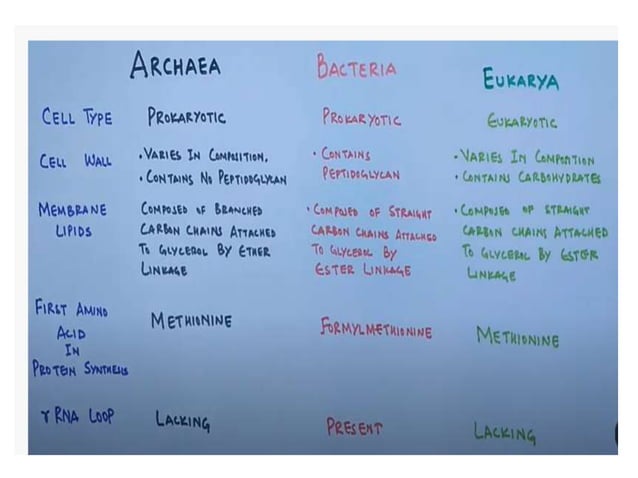 ARCHAEA BACTERIA EUKARYA
CELL TYPE PROKARYOTIC PROKARYOTIC EUKARYOTIC
CELL WALL
• VARIES IN COMPOSITION.
• CONTAINS NO PEPTIDOGLYCAN
• CONTAINS
PEPTIDOGLYCAN
• VARIES IN COMPOSITION
• CONTAINS CARBOHYDRATES
MEMBRANE
LIPIDS
COMPOSED OF BRANCHED
CARBON CHAINS ATTACHED
TO GLYCEROL BY ETHER
LINKAGE
• COMPOSED OF STRAIGHT
CARBON CHAINS ATTACHED
TO GLYCEROL BY
ESTER LINKAGE
• COMPOSED OF STRAIGHT
CARBON CHAINS ATTACHED
TO GLYCEROL BY ESTER
LINKAGE
FIRST AMINO
ACID
IN
PROTEIN SYNTHESIS
METHIONINE
FORMYLMETHIONINE
METHIONINE
rRNA LOOP LACKING PRESENT LACKING